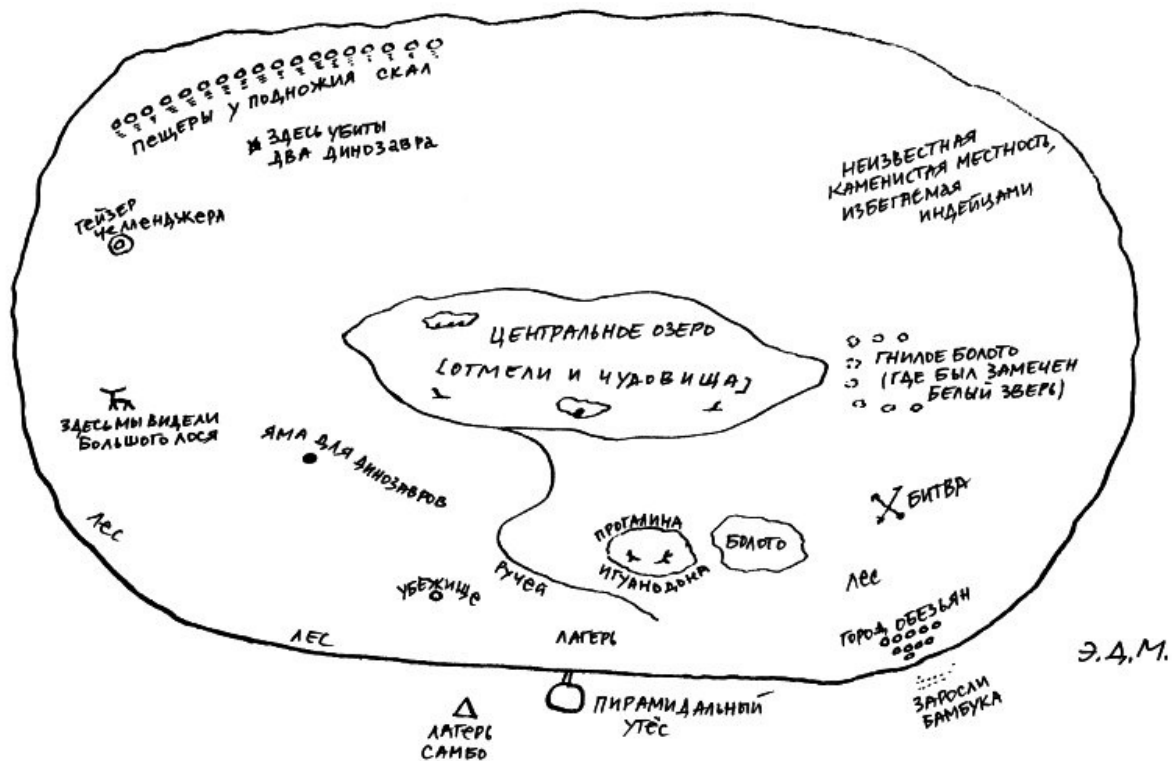 ПЕЩЕРЫ У ПОДНОЖИЯ СКАЛ
ЗДЕСЬ УБИТЫ
ДВА ДИНОЗАВРА
НЕИЗВЕСТНАЯ
КАМЕНИСТАЯ МЕСТНОСТЬ,
ИЗБЕГАЕМАЯ
ИНДЕЙЦАМИ
ГЕЙЗЕР
ЧЕЛЛЕНДЖЕРА
ЦЕНТРАЛЬНОЕ ОЗЕРО
[ОТМЕЛИ И ЧУДОВИЩА]
ГНИЛОЕ БОЛОТО
(ГДЕ БЫЛ ЗАМЕЧЕН
БЕЛЫЙ ЗВЕРЬ)
ЗДЕСЬ МЫ ВИДЕЛИ
БОЛЬШОГО ЛОСЯ
ЯМА ДЛЯ ДИНОЗАВРОВ
БИТВА
ЛЕС
ПРОГАЛИНА
ИГУАНОДОНА
БОЛОТО
РУЧЕЙ
УБЕЖИЩЕ
ЛЕС
ГОРОД ОБЕЗЬЯН
ЛЕС
ЛАГЕРЬ
Э.Д.М.
ЗАРОСЛИ
БАМБУКА
ПИРАМИДАЛЬНЫЙ
УТЁС
ЛАГЕРЬ
САМБО